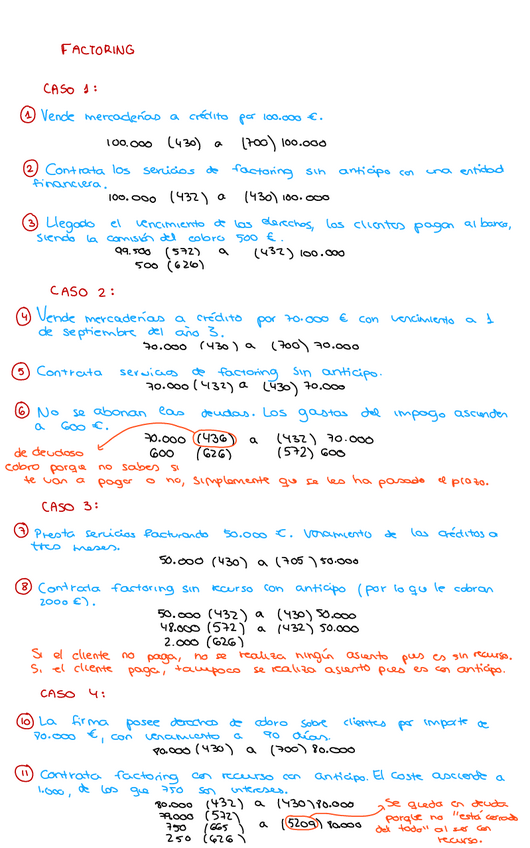 FACTORING
CASO 1:
① Vende mercaderías a crédito por 100.000 €.
100.000 (430) a (700) 100.000
② Contrata los servicios de factoring sin anticipo con una entidad
financiera.
100.000 (432) a (430) 100.000
③ Llegado el vencimiento de los derechos, los clientes pagan al banco,
siendo la comisión del cobro 500 €.
99.500 (572) a (432) 100.000
500 (626)
CASO 2:
④ Vende mercaderías a crédito por 70.000 € con vencimiento a 1
de septiembre del año 3.
70.000 (430) a (700) 70.000
⑤ Contrata servicios de factoring sin anticipo.
70.000 (432) a (430) 70.000
⑥ No se abonan las deudas. Los gastos del impago ascienden
a 600 €.
70.000 (436) a (432) 70.000
600 (626) (572) 600
de deudoso
cobro porque no sabes si
te van a pagar o no, simplemente que se les ha pasado el plazo.
CASO 3:
⑦ Presta servicios facturando 50.000 €. Vencimiento de los créditos a
tres meses.
50.000 (430) a (705) 50.000
⑧ Contrata factoring sin recurso con anticipo (por lo que le cobran
2000 €).
50.000 (432) a (430) 50.000
48.000 (572) a (432) 50.000
2.000 (626)
Si el cliente no paga, no se realiza ningún asiento pues es sin recurso.
Si el cliente paga, tampoco se realiza asiento pues es con anticipo.
CASO 4:
⑩ La firma posee derechos de cobro sobre clientes por importe de
80.000 €, con vencimiento a 90 días.
80.000 (430) a (700) 80.000
⑪ Contrata factoring con recurso con anticipo. El coste asciende a
1.000, de los que 750 son intereses.
80.000 (432) a (430) 80.000
79.000 (572)
750 (665 a (5209) 80.000
250 (626)
Se queda en deuda
porque no "está cerrado
del todo" al ser con
recurso.